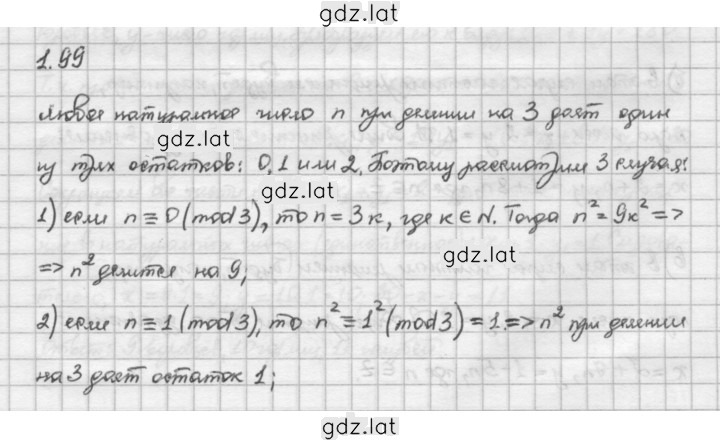 gdz.lat
1.99
Любое натуральное число n при делении на 3 дает один
gdz.lat
из трех остатков: 0, 1 или 2. Поэтому рассмотрим 3 случая:
gdz.lat
1) если n ≡ 0 (mod 3), то n = 3к, где к ∈ N. Тогда n² = 9к² =>
=> n² делится на 9;
gdz.lat
2) если n ≡ 1 (mod 3), то n² ≡ 1² (mod 3) = 1 => n² при делении
на 3 дает остаток 1;
gdz.lat
gdz.lat